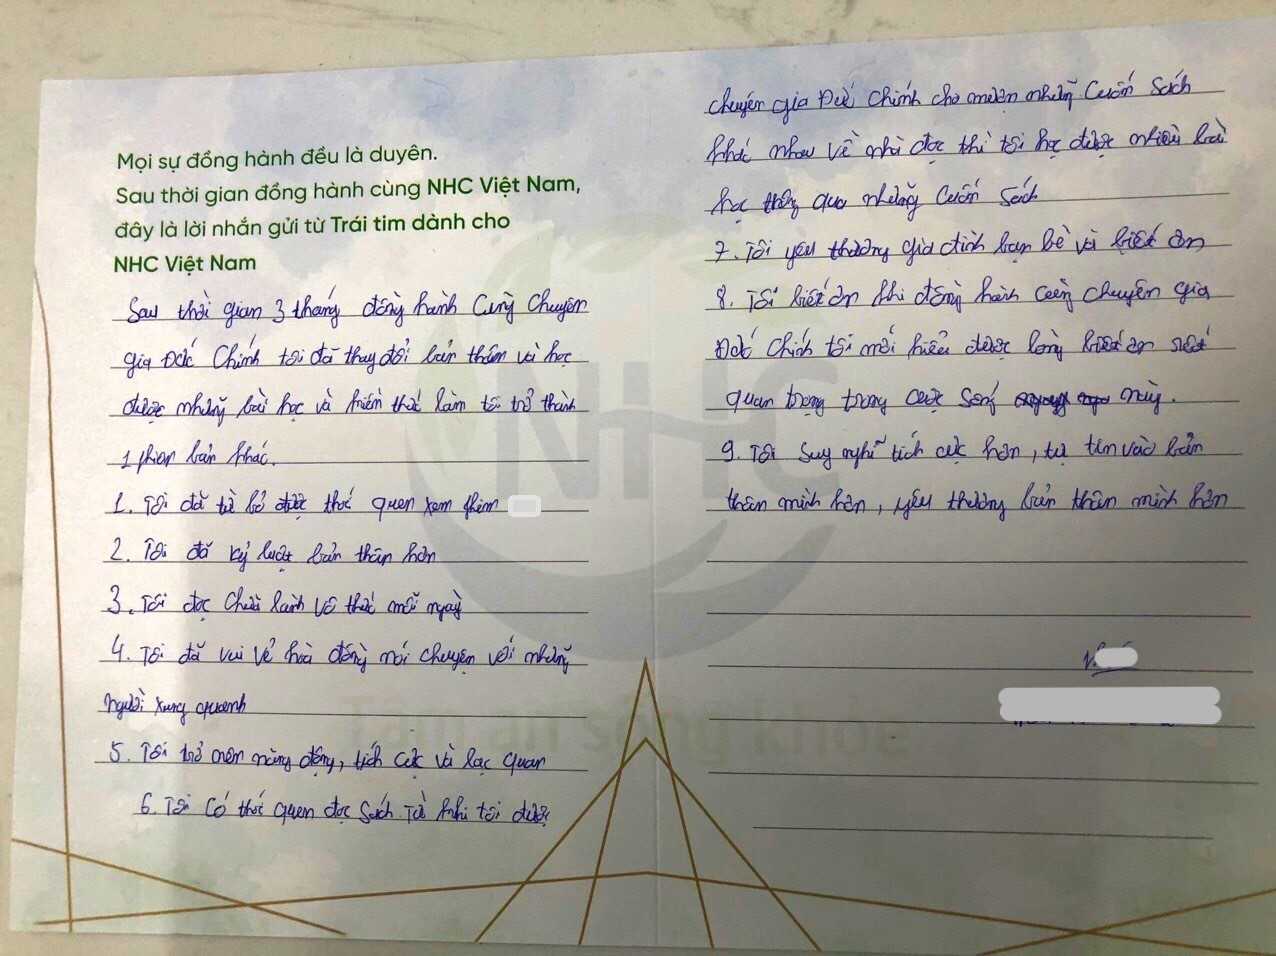 Mọi sự đồng hành đều là duyên.
Sau thời gian đồng hành cùng NHC Việt Nam,
đây là lời nhắn gửi từ Trái tim dành cho
NHC Việt Nam
Sau thời gian 3 tháng đồng hành cùng chuyên
gia Đức Chính tôi đã thay đổi bản thân và học
được những bài học và kiến thức làm tôi trở thành
1 phiên bản khác.
1. Tôi đã từ bỏ được thói quen xem phim
2. Tôi đã kỷ luật bản thân hơn
3. Tôi đọc chữa lành vô thức mỗi ngày
4. Tôi đã vui vẻ hoà đồng nói chuyện với những
người xung quanh
5. Tôi trở nên năng động, tích cực và lạc quan
6. Tôi có thói quen đọc sách. Từ khi tôi được
chuyên gia Đức Chính cho mượn những cuốn sách
khác nhau về nhà đọc thì tôi học được nhiều bài
học thông qua những cuốn sách
7. Tôi yêu thương gia đình bạn bè và biết ơn
8. Tôi biết ơn khi đồng hành cùng chuyên gia
Đức Chính tôi mới hiểu được lòng biết ơn rất
quan trọng trong cuộc sống này.
9. Tôi suy nghĩ tích cực hơn, tự tin vào bản
thân mình hơn, yêu thương bản thân mình hơn
NHC
Tâm an sống khoẻ